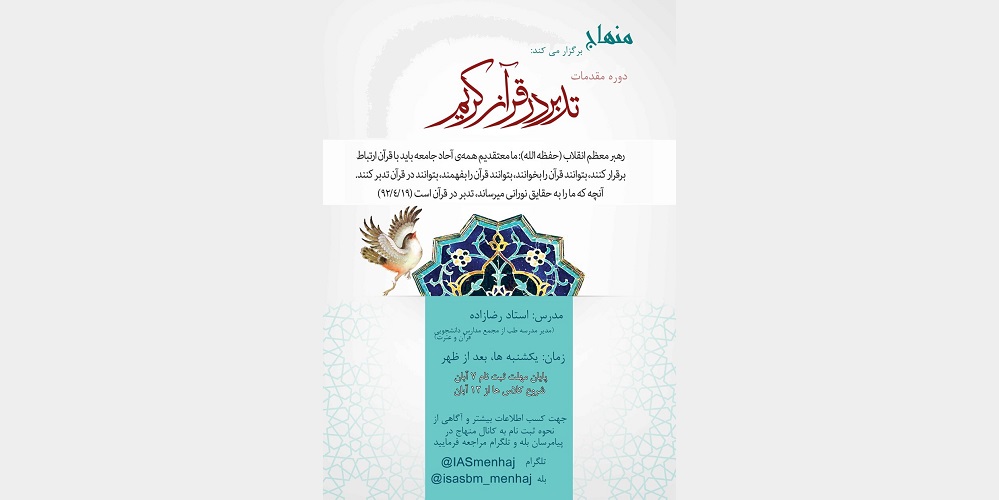 منهاج
برگزار می کند:
دوره مقدمات
تدبر در قرآن کریم
رهبر معظم انقلاب (حفظه الله): ما معتقدیم همه‌ی آحاد جامعه باید با قرآن ارتباط
برقرار کنند، بتوانند قرآن را بخوانند، بتوانند قرآن را بفهمند، بتوانند در قرآن تدبر کنند.
آنچه که ما را به حقایق نورانی میرساند، تدبر در قرآن است (۹۲/۴/۱۹)
مدرس: استاد رضازاده
(مدیر مدرسه طب از مجمع مدارس دانشجویی
قرآن و عترت)
زمان: یکشنبه ها، بعد از ظهر
پایان مهلت ثبت نام ۷ آبان
شروع کلاس ها از ۱۲ آبان
جهت کسب اطلاعات بیشتر و آگاهی از
نحوه ثبت نام به کانال منهاج در
پیامرسان بله و تلگرام مراجعه فرمایید
تلگرام @IASmenhaj
بله @isasbm_menhaj